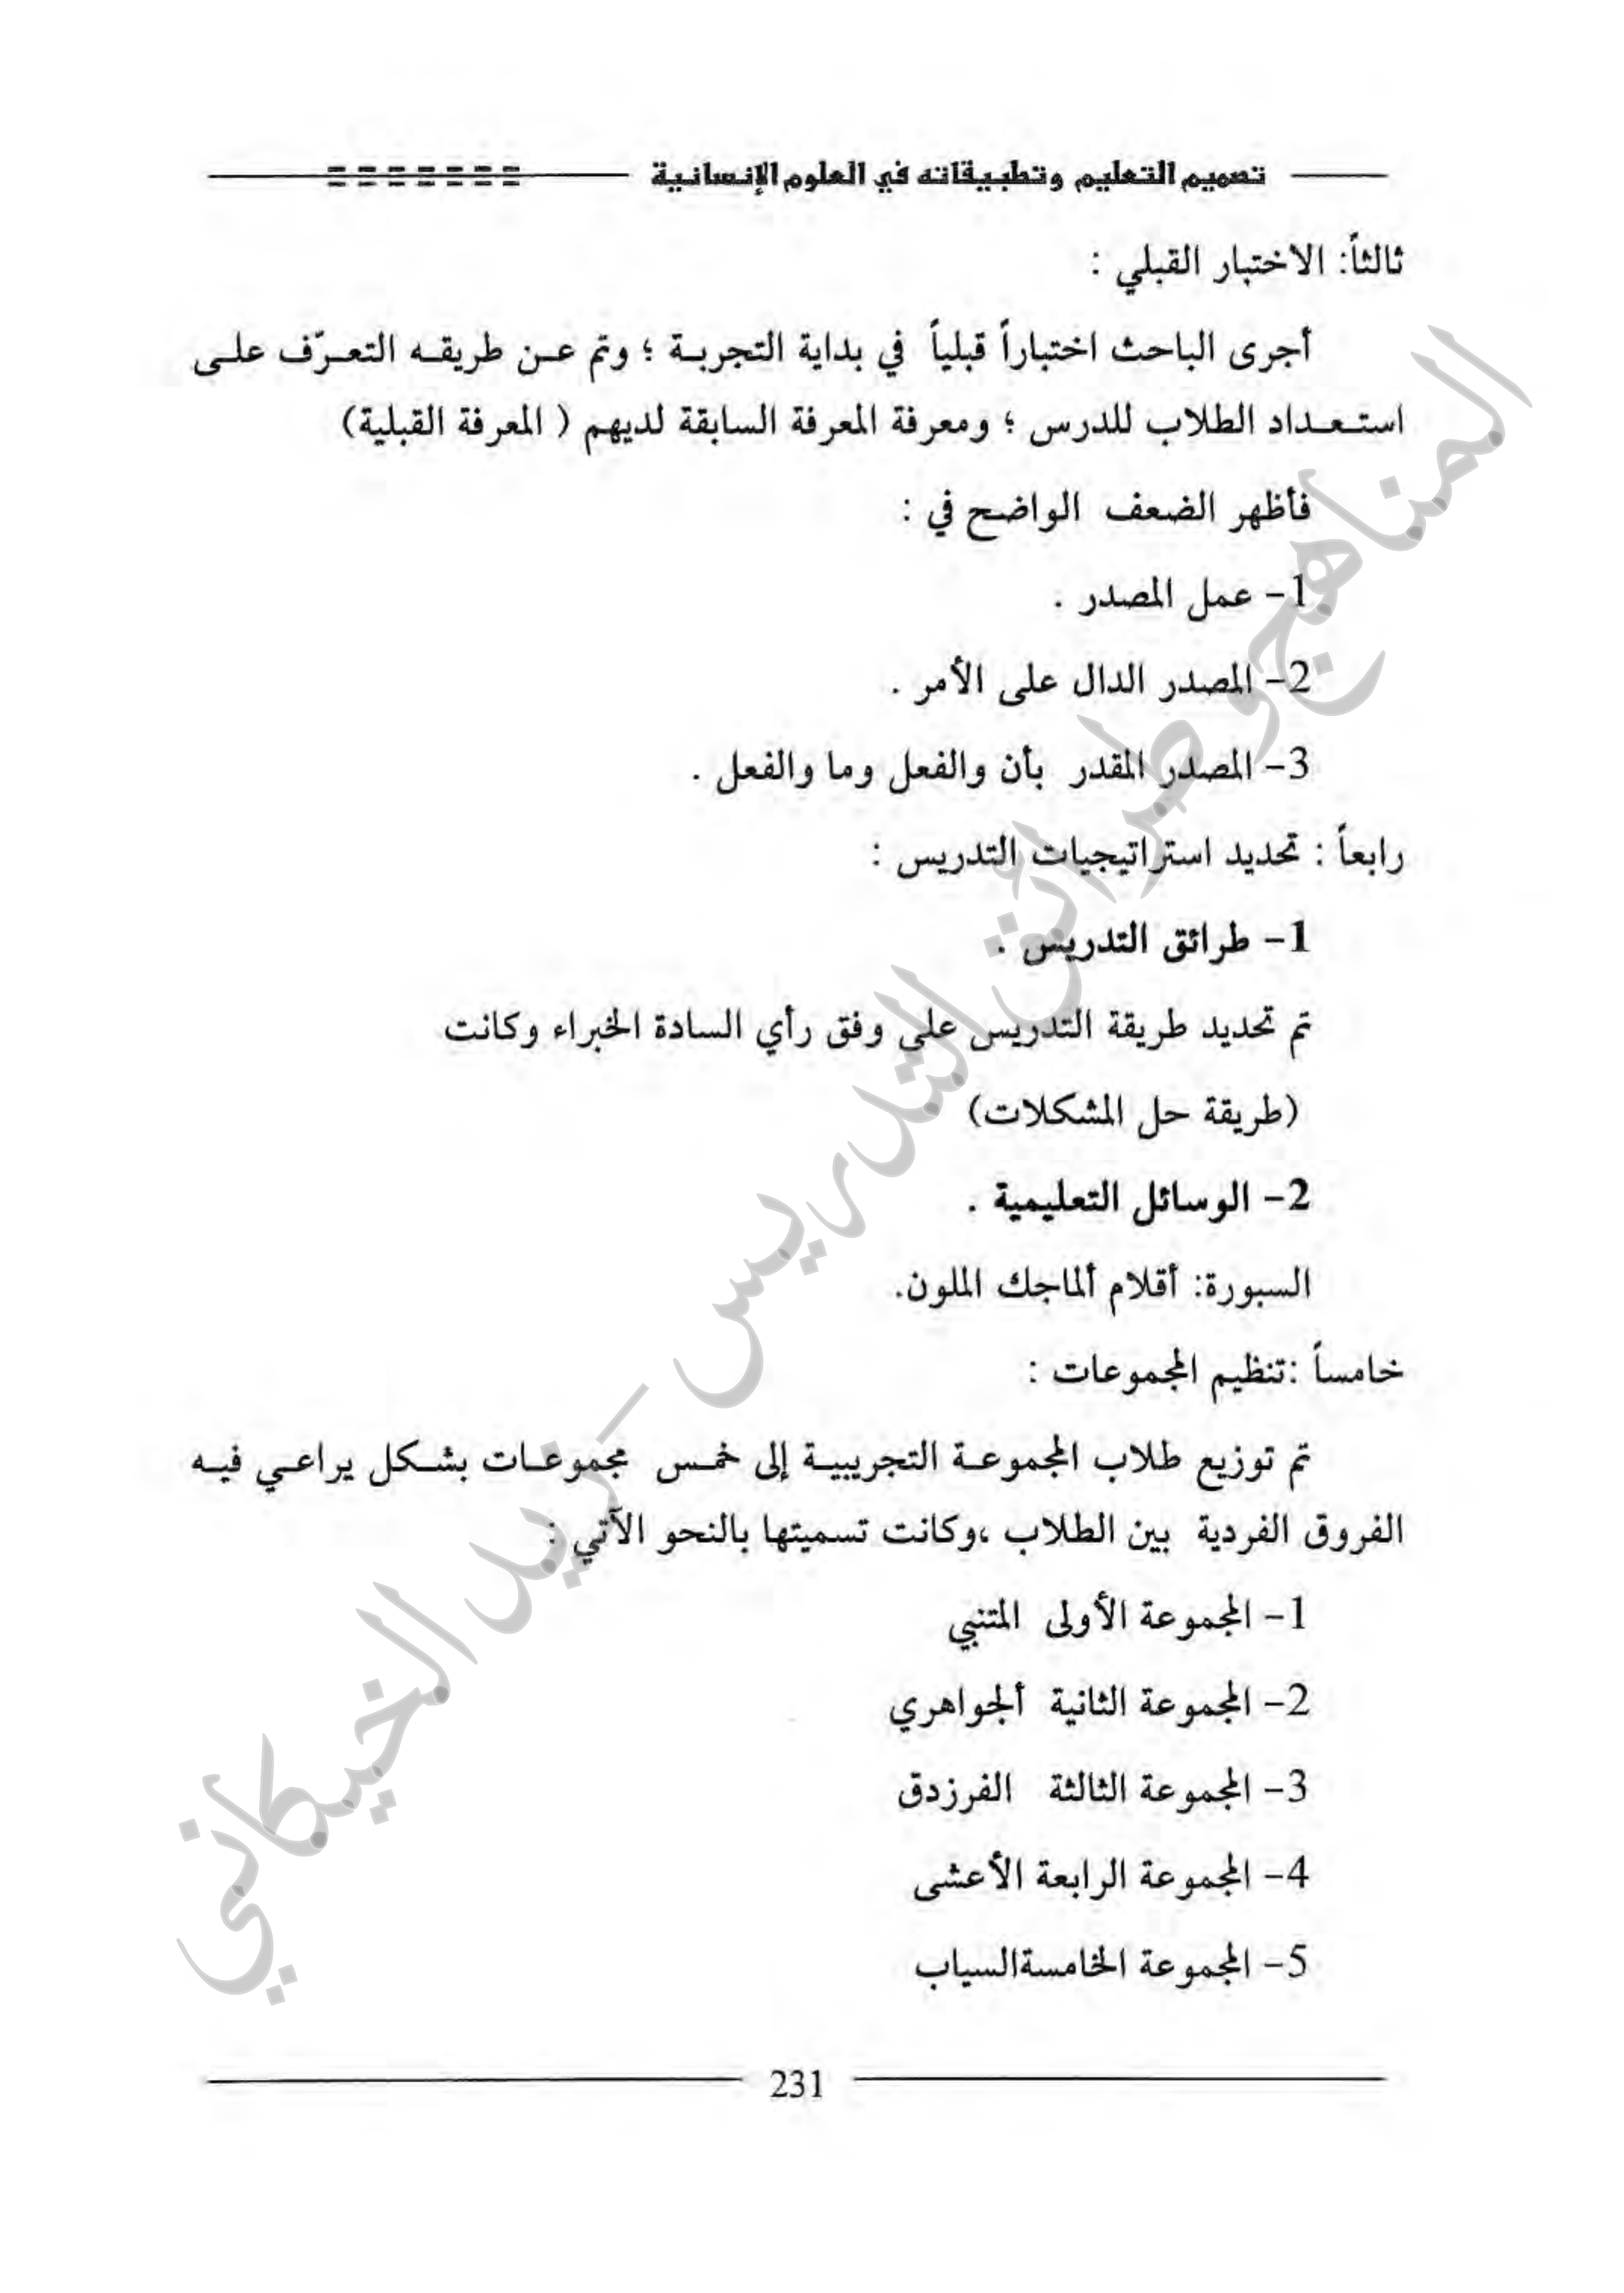 تصميم التعليم وتطبيقاته في العلوم الإنسانية
ثالثاً: الاختبار القبلي :
أجرى الباحث اختباراً قبلياً في بداية التجربة ؛ وتم عن طريقه التعرّف على
استعداد الطلاب للدرس ؛ ومعرفة المعرفة السابقة لديهم ( المعرفة القبلية)
فأظهر الضعف الواضح في :
1- عمل المصدر .
2- المصدر الدال على الأمر .
3- المصدر المقدر بأن والفعل وما والفعل .
رابعاً : تحديد استراتيجيات التدريس :
1- طرائق التدريس .
تم تحديد طريقة التدريس على وفق رأي السادة الخبراء وكانت
(طريقة حل المشكلات)
2- الوسائل التعليمية .
السبورة: أقلام ألماجك الملون.
خامساً :تنظيم المجموعات :
تم توزيع طلاب المجموعة التجريبية إلى خمس مجموعات بشكل يراعي فيه
الفروق الفردية بين الطلاب ،وكانت تسميتها بالنحو الآتي :
1- المجموعة الأولى المتنبي
2- المجموعة الثانية ألجواهري
3- المجموعة الثالثة الفرزدق
4- المجموعة الرابعة الأعشى
5- المجموعة الخامسةالسياب
231
المناهج وطرائق التدريس - زيد الخيكاني